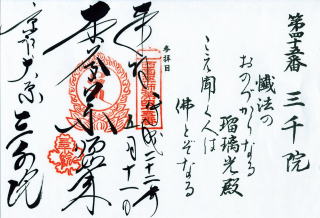 第四十五番 三千院
懺法の
おのづからなる
瑠璃光殿
こゑ聞く人は
佛とぞなる
参拝日
奉拝 平成二十二年
五月十一日
薬师如来
京都大原 三千院